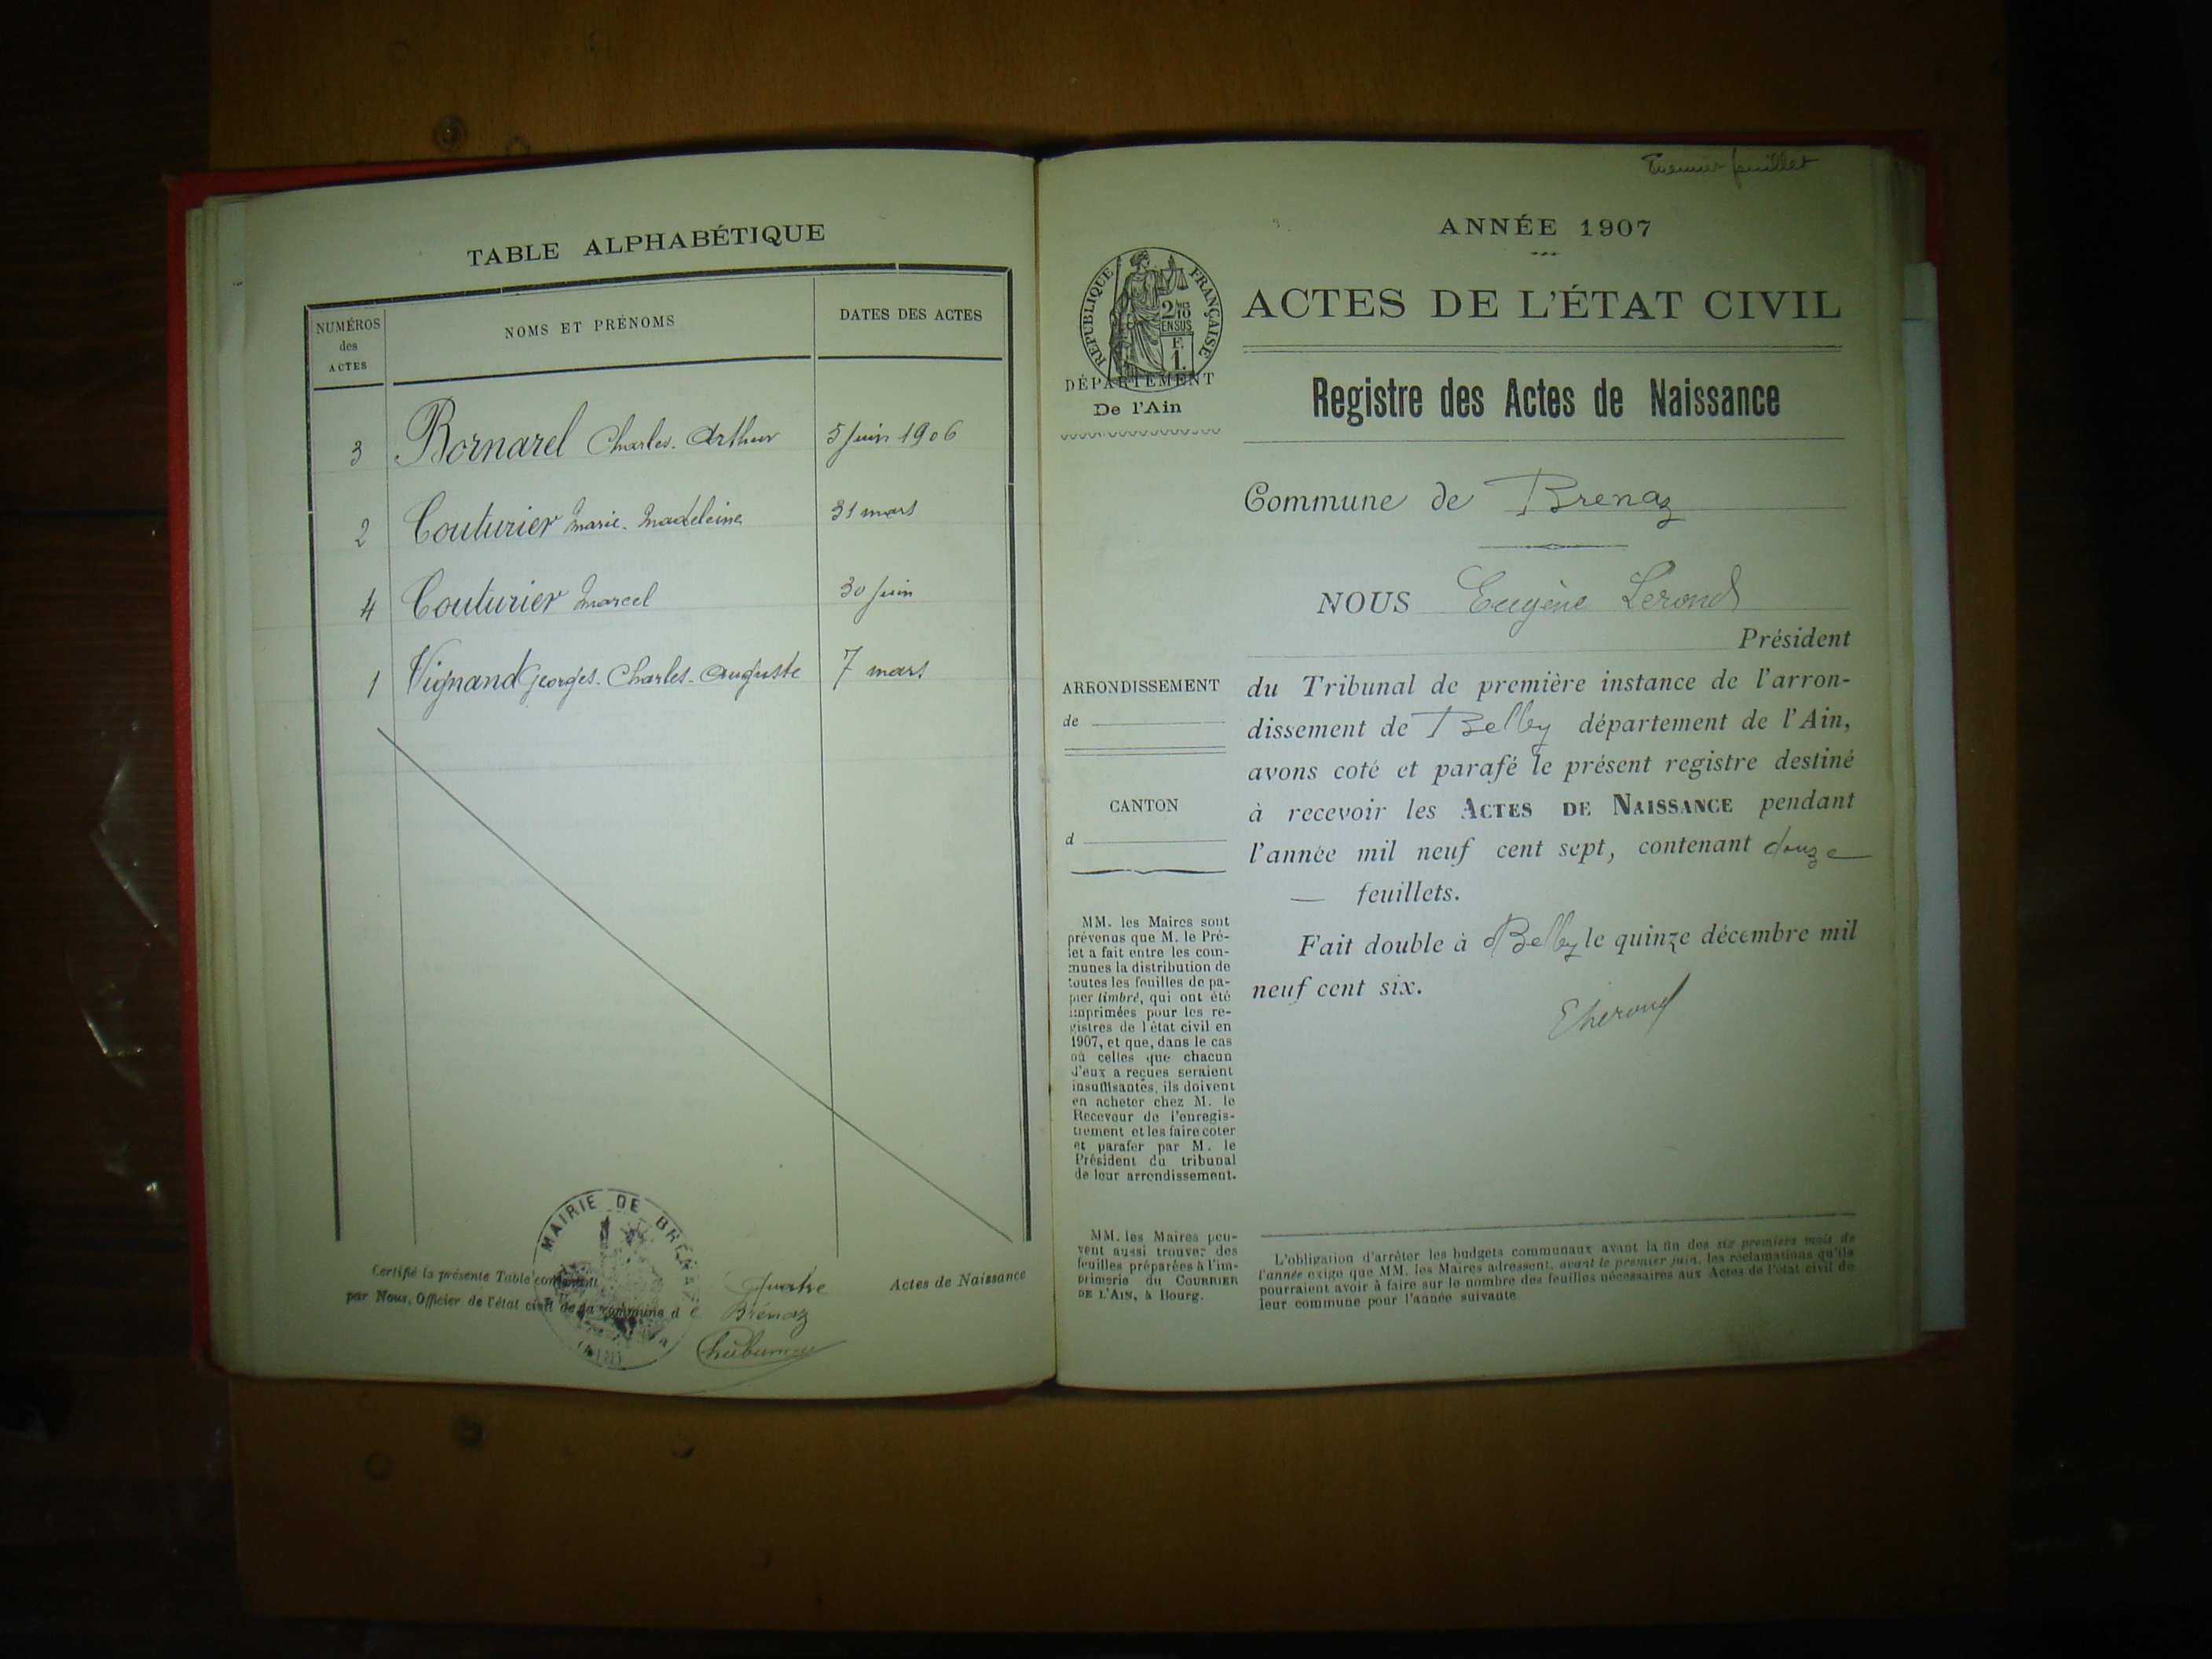 TABLE ALPHABÉTIQUE
NUMÉROS
des
ACTES
NOMS ET PRÉNOMS
DATES DES ACTES
3 Bornarel Charles-Arthur 5 Juin 1906
2 Couturier Marie-Madeleine 31 mars
4 Couturier Marcel 30 Juin
1 Vignand Georges-Charles-Auguste 7 mars
MAIRIE DE BRÉNAZ
(AIN)
Certifié la présente Table contenant Quatre Actes de Naissance
par Nous, Officier de l'état civil de la commune de Brénaz
Premier feuillet
ANNÉE 1907
RÉPUBLIQUE FRANÇAISE
2/10
EN SUS
F.
1.
DÉPARTEMENT
De l'Ain
ACTES DE L'ÉTAT CIVIL
Registre des Actes de Naissance
Commune de Brenaz
NOUS Eugène Lerond
Président
du Tribunal de première instance de l'arron-
dissement de Belley département de l'Ain,
avons coté et parafé le présent registre destiné
à recevoir les ACTES DE NAISSANCE pendant
l'année mil neuf cent sept, contenant douze
— feuillets.
Fait double à Belley le quinze décembre mil
neuf cent six.
ELerond
ARRONDISSEMENT
de
CANTON
d
MM. les Maires sont
prévenus que M. le Pré-
fet a fait entre les com-
munes la distribution de
toutes les feuilles de pa-
pier timbré, qui ont été
imprimées pour les re-
gistres de l'état civil en
1907, et que, dans le cas
où celles que chacun
d'eux a reçues seraient
insuffisantes, ils doivent
en acheter chez M. le
Receveur de l'enregis-
trement et les faire coter
et parafer par M. le
Président du tribunal
de leur arrondissement.
MM. les Maires peu-
vent aussi trouver des
feuilles préparées à l'im-
primerie du COURRIER
DE L'AIN, à Bourg.
L'obligation d'arrêter les budgets communaux avant la fin des six premiers mois de
l'année exige que MM. les Maires adressent, avant le premier juin, les réclamations qu'ils
pourraient avoir à faire sur le nombre des feuilles nécessaires aux Actes de l'état civil de
leur commune pour l'année suivante